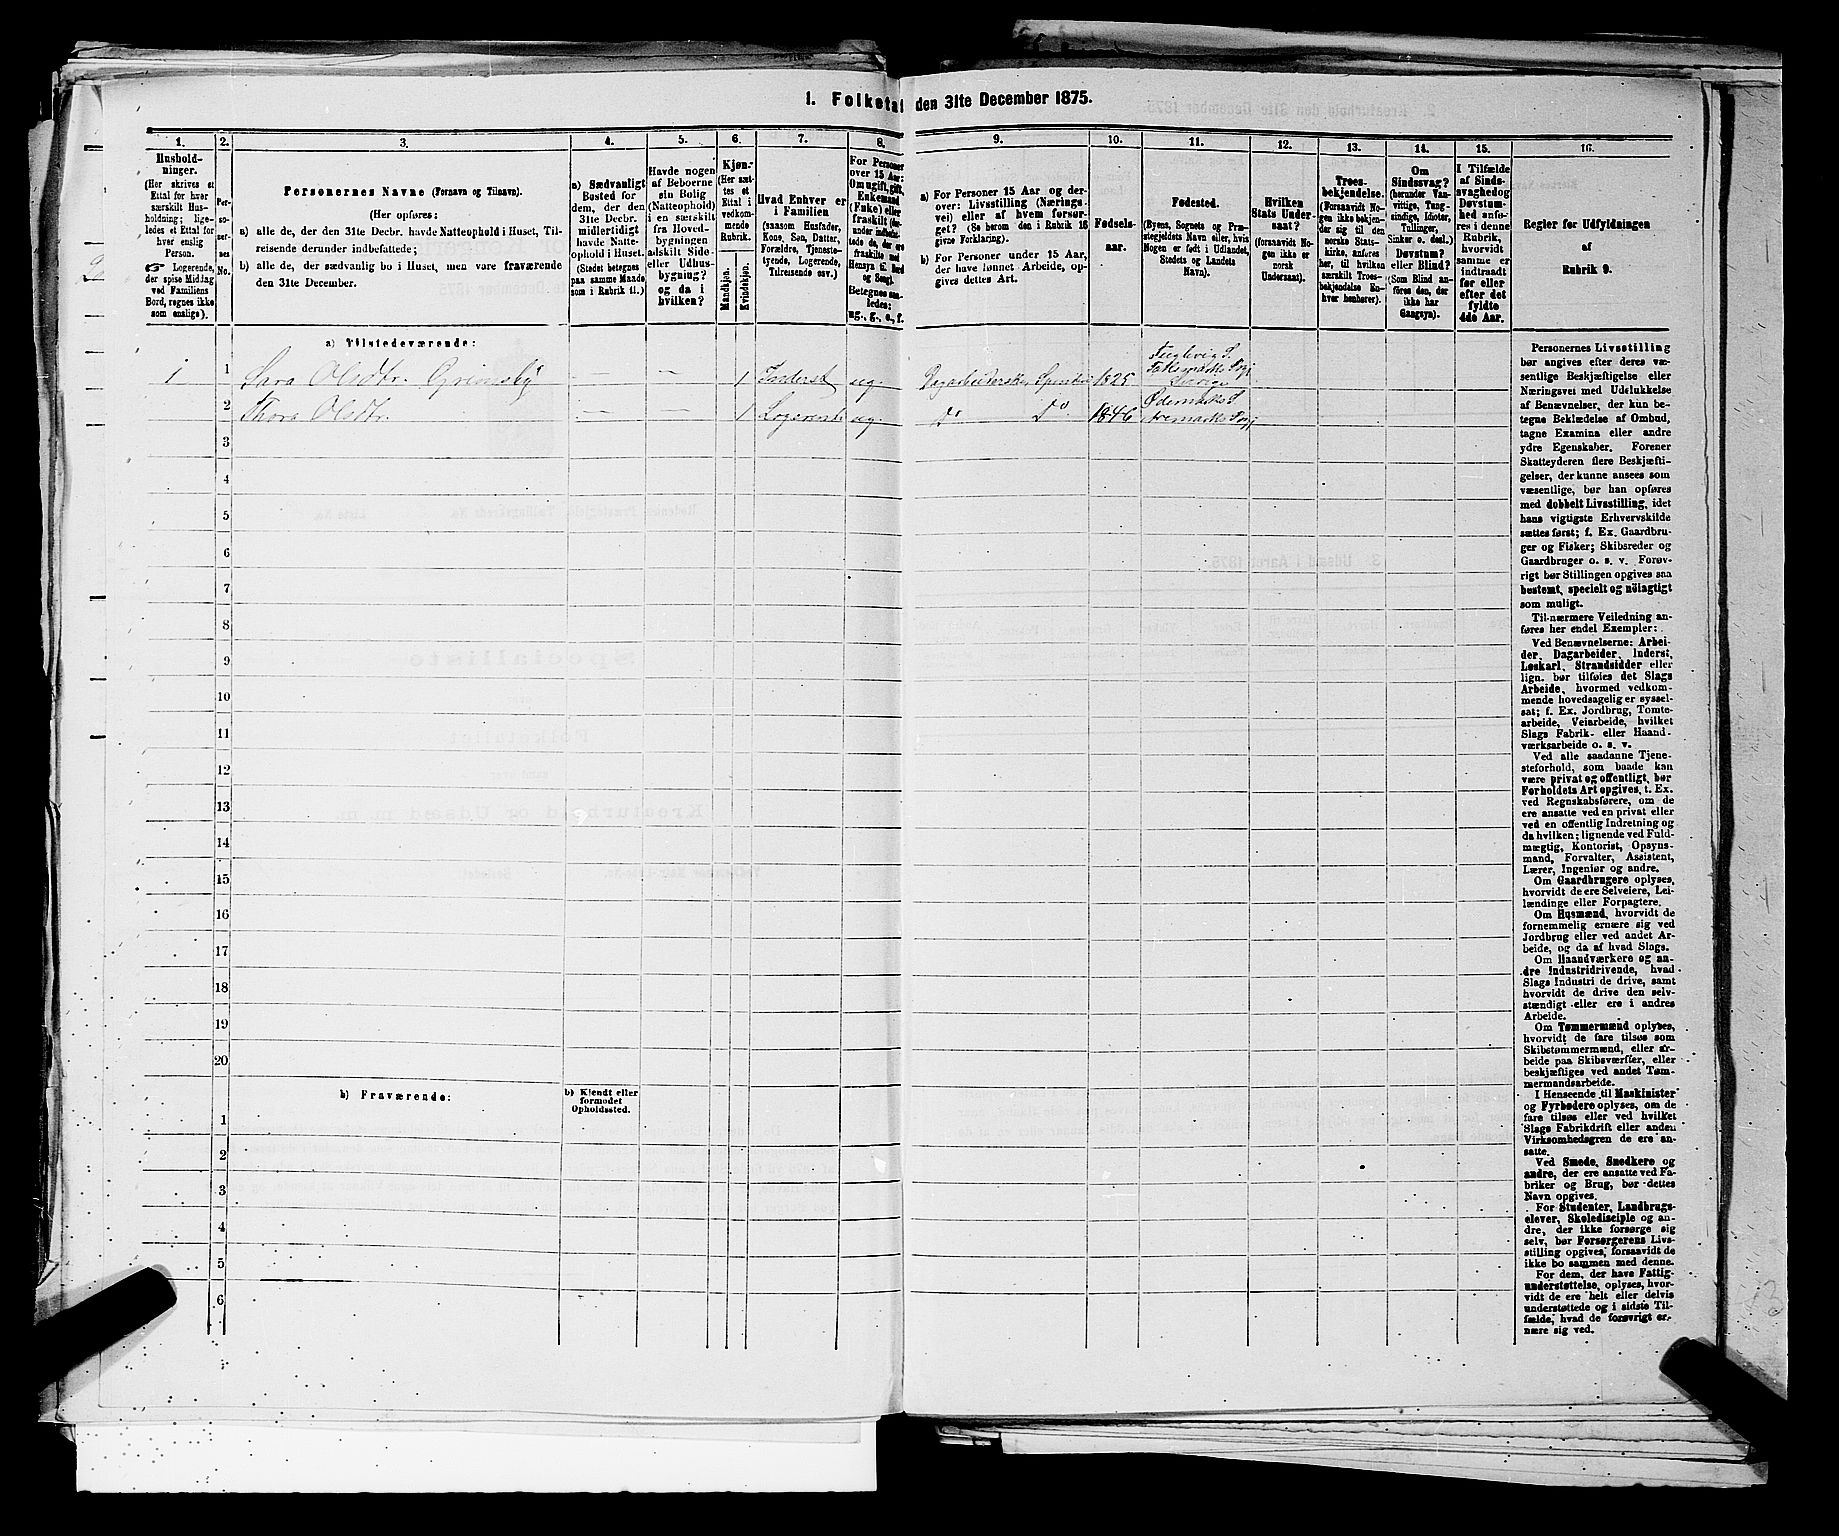 1. Folketal den 31te December 1875.
1.
2.
3.
4.
5.
6.
7.
8.
9.
10.
11.
12.
13.
14.
15.
16.
Husholdninger.
(Her skrives et
Ettal for hver
særskilt Husholdning;
ligeledes et Ettal for
hver enslig
Person.
☞ Logerende,
der spise Middag
ved Familiens
Bord, regnes ikke
som enslige).
Personernes No.
Personernes Navne (Fornavn og Tilnavn).
(Her opføres:
a) alle de, der den 31te Decbr. havde Natteophold i Huset, Tilreisende
derunder indbefattede;
b) alle de, der sædvanlig bo i Huset, men vare fraværende
den 31te December.
a) Sædvanligt
Bosted for
dem, der den
31te Decbr.
midlertidigt
havde Natteophold
i Huset.
(Stedet betegnes
paa samme Maade
som i Rubrik 11.)
Havde nogen
af Beboerne
sin Bolig
(Natteophold)
i en særskilt
fra Hovedbygningen
adskilt Side-
eller Udhusbygning?
og da i
hvilken?
Kjøn.
(Her sættes
et
Ettal i
vedkommende
Rubrik.
Mandkjøn.
Kvindekjøn.
Hvad Enhver er
i Familien
(saasom Husfader,
Kone, Søn, Datter,
Forældre, Tjenestetyende,
Logerende,
Tilreisende osv.)
For Personer
over 15 Aar:
Om ugift, gift,
Enkemand
(Enke) eller
fraskilt
Betegnes saaledes:
ug., g., e., f.
a) For Personer 15 Aar og derover:
Livsstilling (Næringsvei)
eller af hvem forsørget?
(Se herom den i Rubrik 16
givne Forklaring).
b) For Personer under 15 Aar,
der have lønnet Arbeide, opgives
dettes Art.
Fødselsaar.
Fødested.
(Byens, Sognets og Præstegjeldets
Navn eller, hvis
Nogen er født i Udlandet,
Stedets og Landets
Navn).
Hvilken
Stats Undersaat?
(forsaavidt Nogen
ikke er
norsk
Undersaat).
Troesbekjendelse.
(Forsaavidt Nogen
ikke bekjender
sig til den
norske Statskirke,
anføres
her, til hvilken
særskilt Troesbekjendelse
Enhver henhører).
Om
Sindssvag?
(herunder Vanvittige,
Tungsindige,
Idioter,
Tullinger,
Sinker o. desl.)
Døvstum?
eller Blind?
(Som Blind anføres
den, der
ikke har
Gangsyn).
I Tilfælde
af Sindssvaghed
og
Døvstumhed
anføres
i denne
Rubrik,
hvorvidt
samme er
indtraadt
før eller
efter det
fyldte
4de Aar.
Regler for Udfyldningen
af
Rubrik 9.
a) Tilstedeværende:
1 1 Sara Olsdtr. Grimsby — — 1 Inderst ug. Dagarbeiderske, 1825 Sverige
2 Thora Olsdtr. — — 1 Logerende ug. Do Do 1846 Ødemarks S. Aremarks
3
4
5
6
7
8
9
10
11
12
13
14
15
16
17
18
19
20
b) Fraværende:
b) Kjendt eller
formodet
Opholdssted.
1
2
3
4
5
6
Personernes Livsstilling
bør angives efter deres væsentlige
Beskjæftigelse eller
Næringsvei med Udelukkelse
af Benævnelser, der kun betegne
Beklædelse af Ombud,
tagne Examina eller andre
ydre Egenskaber. Forener
Skatteyderen flere Beskjæftigelser,
der kunne ansees som
væsentlige, bør han opføres
med dobbelt Livsstilling, idet
hans vigtigste Erhvervskilde
sættes først; f. Ex. Gaardbruger
og Fisker; Skibsreder og
Gaardbruger o. s. v. Forøvrigt
bør Stillingen opgives saa
bestemt, specielt og nöiagtigt
som muligt.
Til nærmere Veiledning anføres
her endel Exempler:
Ved Benævnelserne: Arbeider,
Dagarbeider, Inderst,
Løskarl, Strandsidder eller
lign. bør tilføies det Slags
Arbeide, hvormed vedkommende
hovedsagelig er sysselsat;
f. Ex. Jordbrug, Tomtearbeide,
Veiarbeide, hvilket
Slags Fabrik- eller Haandværksarbeide
o. s. v.
Ved alle saadanne Tjenesteforhold,
som baade kan
være privat og offentligt, bør
Forholdets Art opgives, t. Ex.
ved Regnskabsførere, om de
ere ansatte ved en privat eller
ved en offentlig Indretning og
da hvilken; lignende ved Fuldmægtig,
Kontorist, Opsynsmand,
Forvalter, Assistent,
Lærer, Ingeniør og andre.
Om Gaardbrugere oplyses,
hvorvidt de ere Selveiere, Leilændinge
eller Forpagtere.
Om Husmænd, hvorvidt de
fornemmelig ernære sig ved
Jordbrug eller ved andet Arbeide,
og da af hvad Slags.
Om Haandværkere og andre
Industridrivende, hvad
Slags Industri de drive, samt
hvorvidt de drive den selvstændigt
eller ere i andres
Arbeide.
Om Tømmermænd oplyses,
hvorvidt de fare tilsøs som
Skibstømmermænd, eller arbeide
paa Skibsværfter, eller
beskjæftiges ved andet Tømmermandsarbeide.
I Henseende til Maskinister
og Fyrbødere oplyses, om de
fare tilsøs eller ved hvilket
Slags Fabrikdrift eller anden
Virksomhedsgren de ere ansatte.
Ved Smede, Snedkere og
andre, der ere ansatte ved Fabriker
og Brug, bør dettes
Navn opgives.
For Studenter, Landbrugselever,
Skoledisciple og andre,
der ikke forsørge sig
selv, bør Forsørgerens Livsstilling
opgives, forsaavidt de
ikke bo sammen med denne.
For dem, der have Fattigunderstøttelse,
oplyses, hvorvidt
de ere helt eller delvis
understøttede og i sidste Tilfælde,
hvad de forøvrigt ernære
sig ved.